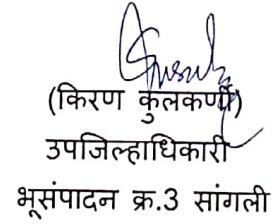 (किरण कुलकर्णी)
उपजिल्हाधिकारी
भूसंपादन क्र.3 सांगली